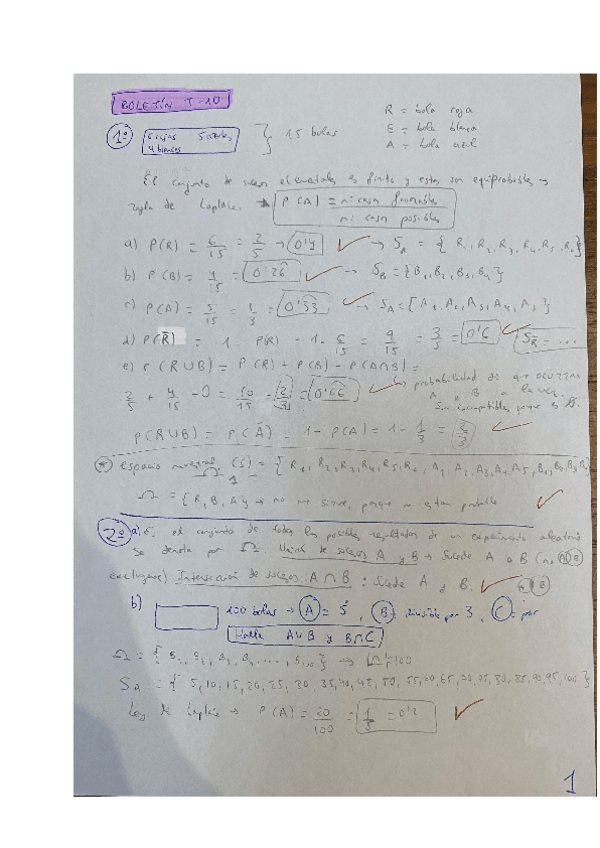 BOLETÍN T-10
R = bola roja
1º 6 rojas 5 azules, 4 blancas } 15 bolas
B = bola blanca
A = bola azul
El conjunto de sucesos elementales es finito y estos son equiprobables →
regla de Laplace. → P(A) = nº casos favorables / nº casos posibles
a) P(R) = 6/15 = 2/5 → 0'4 → S_R = { R1, R2, R3, R4, R5, R6 }
b) P(B) = 4/15 = 0'26 → S_B = { B1, B2, B3, B4 }
c) P(A) = 5/15 = 1/3 = 0'33 → S_A = { A1, A2, A3, A4, A5 }
d) P(R̄) = 1 - P(R) = 1 - 6/15 = 9/15 = 3/5 = 0'6 S_R̄ = ...
e) P(R∪B) = P(R) + P(B) - P(A∩B) =
2/5 + 4/15 - 0 = 10/15 = 2/3 = 0'66 → probabilidad de que ocurran
A y B a la vez.
Son incompatibles porque es Ø.
P(R∪B) = P(Ā) = 1 - P(A) = 1 - 1/3 = 2/3
* espacio muestral (S) = { R1, R2, R3, R4, R5, R6, A1, A2, A3, A4, A5, B1, B2, B3, B4
Ω
Ω = { R, B, A } → no me sirve, porque no están
2º a) E. el conjunto de todos los posibles resultados de un experimento aleatorio
Se denota por Ω. Unión de sucesos A y B → Sucede A o B (no
excluyente) Intersección de sucesos A∩B : Sucede A y B.
b) 100 bolas → A = 5, B = divisible por 3, C = par
Halla A∪B y B∩C
Ω = { S1, S2, S3, S4, ...., S100 } → |Ω| = 100
S_A = { 5, 10, 15, 20, 25, 30 35, 40, 45, 50, 55, 60, 65, 70, 75, 80, 85, 90, 95, 100 }
Ley de Laplace → P(A) = 20/100 = 1/5 = 0'2
1